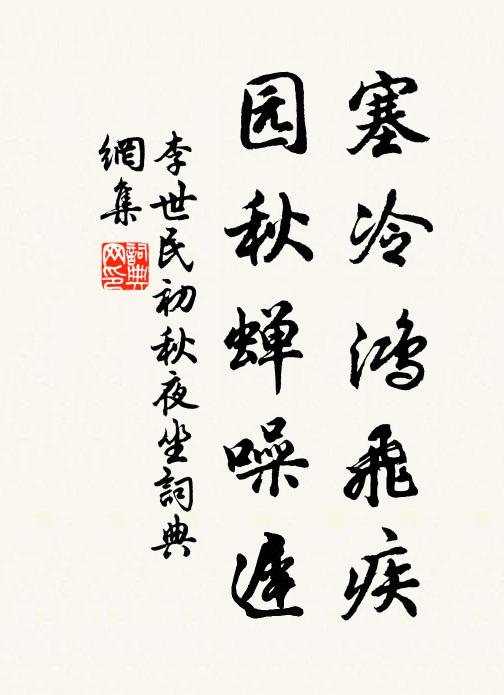 塞冷鸿飛疾
园秋蝉噪遅
李世民初秋夜坐詞典
網集
詞典
网印